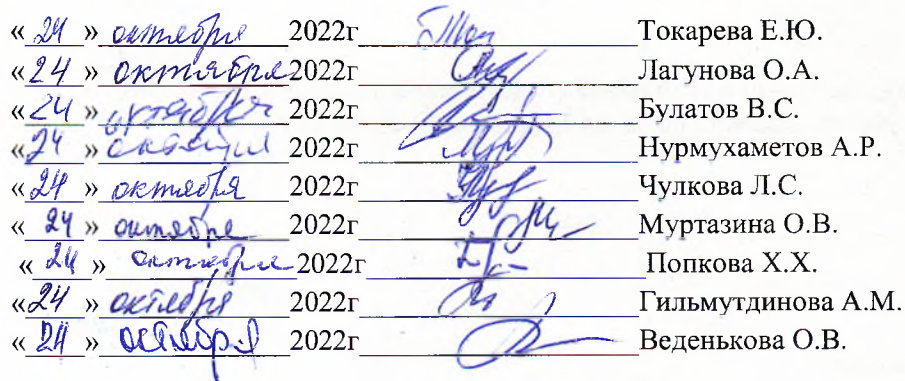 « 24 » октября 2022г Токарева Е.Ю.
« 24 » октября 2022г Лагунова О.А.
« 24 » октября 2022г Булатов В.С.
« 24 » октября 2022г Нурмухаметов А.Р.
« 24 » октября 2022г Чулкова Л.С.
« 24 » октября 2022г Муртазина О.В.
« 24 » октября 2022г Попкова Х.Х.
« 24 » октября 2022г Гильмутдинова А.М.
« 24 » октября 2022г Веденькова О.В.